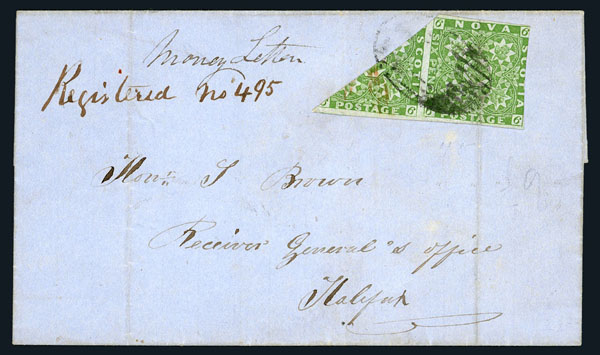 Money Letter
Registered No 495
6 NOVA 6
SCOTIA
SCOTIA
6 POSTAGE 6
POSTAGE 6
Honn J Brown
Receiver General's office
Halifax